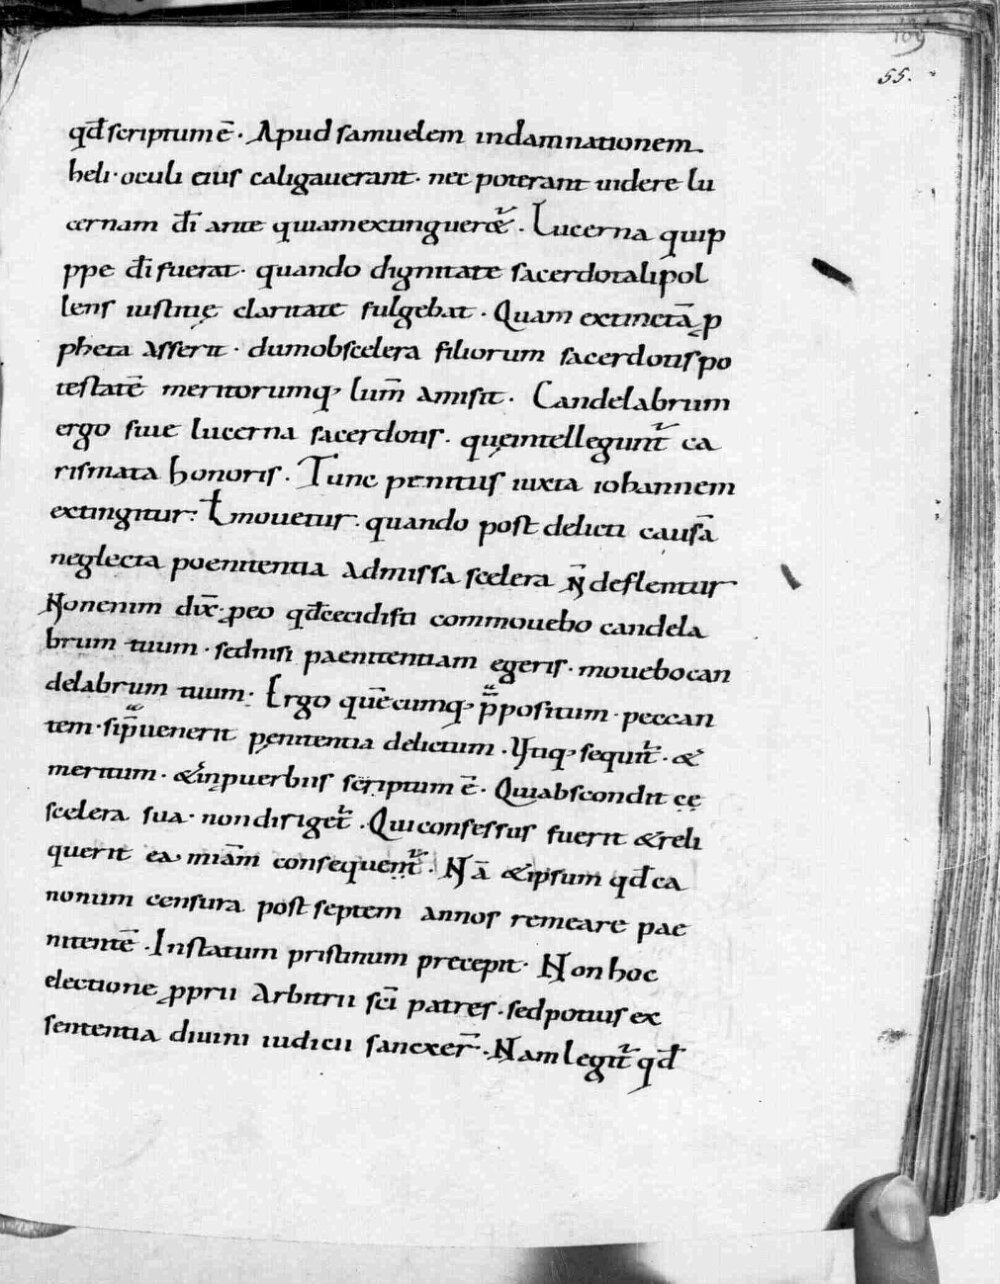 109
55.
qđ scriptum ē · Apud samuelem indamnationem
heli · oculi eius caligauerant · nec poterant uidere lu
cernam dī ante quiam extingueret᷑ · Lucerna quip
ppe dī fuerat · quando dignitate sacerdotali pol
lens iustitię claritate fulgebat · Quam extinctā ꝓ
pheta Asserit · dum ob scelera filiorum sacerdotis po
testatē meritorumq; lum̄ amisit · Candelabrum
ergo siue lucerna sacerdotis · quę intellegunt᷑ ca
rismata honoris · Tunc penitus iuxta iohannem
extingitur · ł mouetur · quando post delicti causā
neglecta poenitentia admissa scelera n̄ deflentur
Non enim dix̄ · ꝓ eo qđ cecidisti commouebo candela
brum tuum · sed nisi paenitentiam egeris · mouebo can
delabrum tuum · Ergo quēcumq; p̄positum · peccan
tem · si p̄uenerit pęnitentia delictum · Utiq; sequit᷑ · &
meritum · & in puerbiis scriptum ē · Qui abscondit
scelera sua · non diriget᷑ · Qui confessus fuerit & reli
querit ea · miām consequent᷑ · Nā & ipsum qđ ca
nonum censura post septem annos remeare pae
nitentē · In statum pristinum precepit · Non hoc
electione ꝓprii Arbitrii sc̄i patres · sed potius ex
sententia diuini iudicii sanxer̄ · Nam legit᷑ qđ